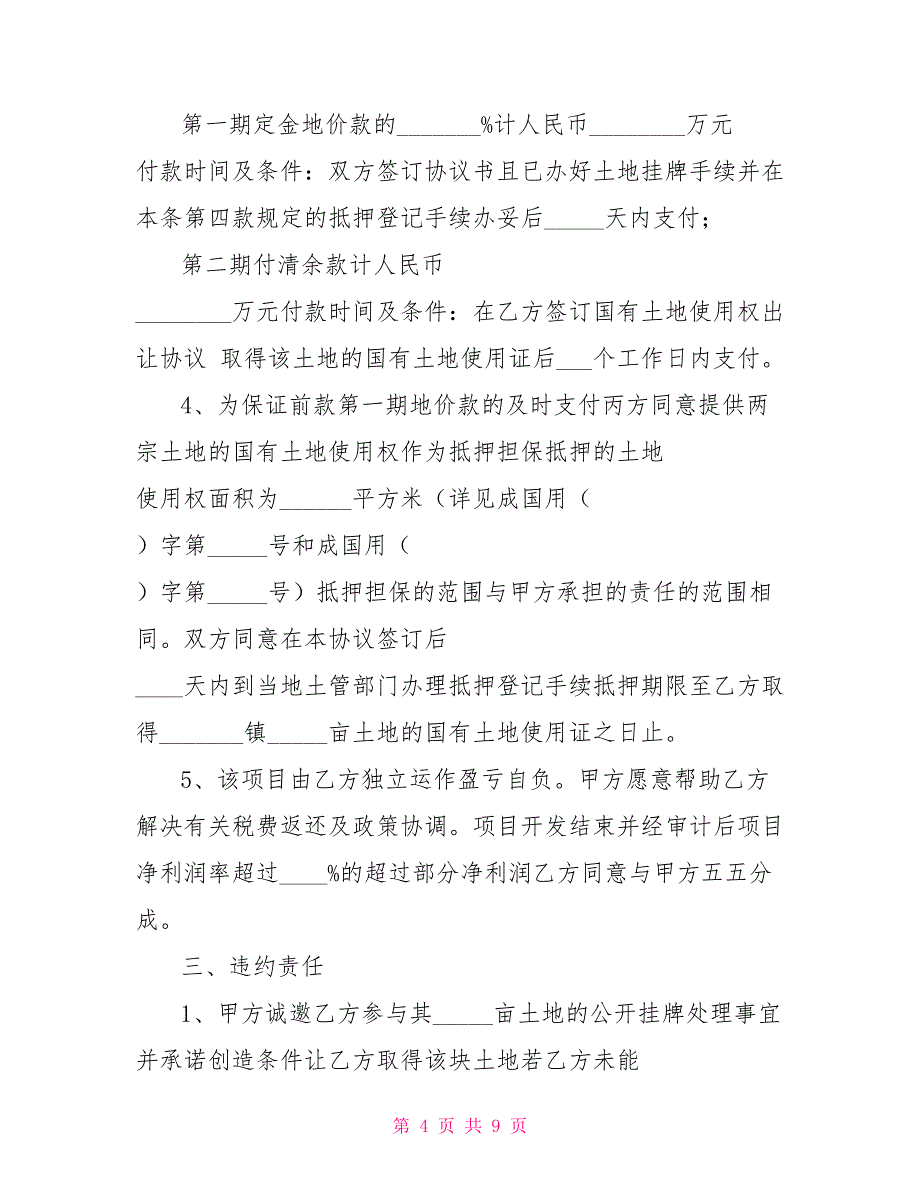 第一期定金地价款的_______%计人民币________万元
付款时间及条件：双方签订协议书且已办好土地挂牌手续并在
本条第四款规定的抵押登记手续办妥后_____天内支付；
第二期付清余款计人民币
________万元付款时间及条件：在乙方签订国有土地使用权出
让协议 取得该土地的国有土地使用证后___个工作日内支付。
4、为保证前款第一期地价款的及时支付丙方同意提供两
宗土地的国有土地使用权作为抵押担保抵押的土地
使用权面积为______平方米（详见成国用（
）字第_____号和成国用（
）字第_____号）抵押担保的范围与甲方承担的责任的范围相
同。双方同意在本协议签订后
____天内到当地土管部门办理抵押登记手续抵押期限至乙方取
得_______镇_____亩土地的国有土地使用证之日止。
5、该项目由乙方独立运作盈亏自负。甲方愿意帮助乙方
解决有关税费返还及政策协调。项目开发结束并经审计后项目
净利润率超过____%的超过部分净利润乙方同意与甲方五五分
成。
三、违约责任
1、甲方诚邀乙方参与其_____亩土地的公开挂牌处理事宜
并承诺创造条件让乙方取得该块土地若乙方未能
第 4 页 共 9 页